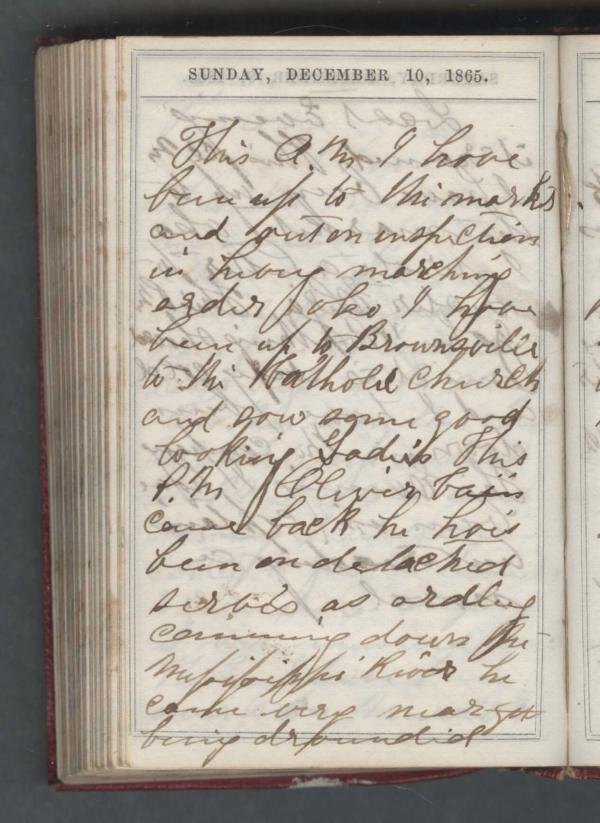 SUNDAY, DECEMBER 10, 1865.
This A.M. I have
been up to the markts
and out on inspection
in heavy marching
order also I have
been up to Brownsville
to the Catholic Church
and saw some good
looking Ladies This
P.M. Oliver
came back he has
been on detached
servis as ordley
comming down the
Mississippi River he
came very near
being drounded